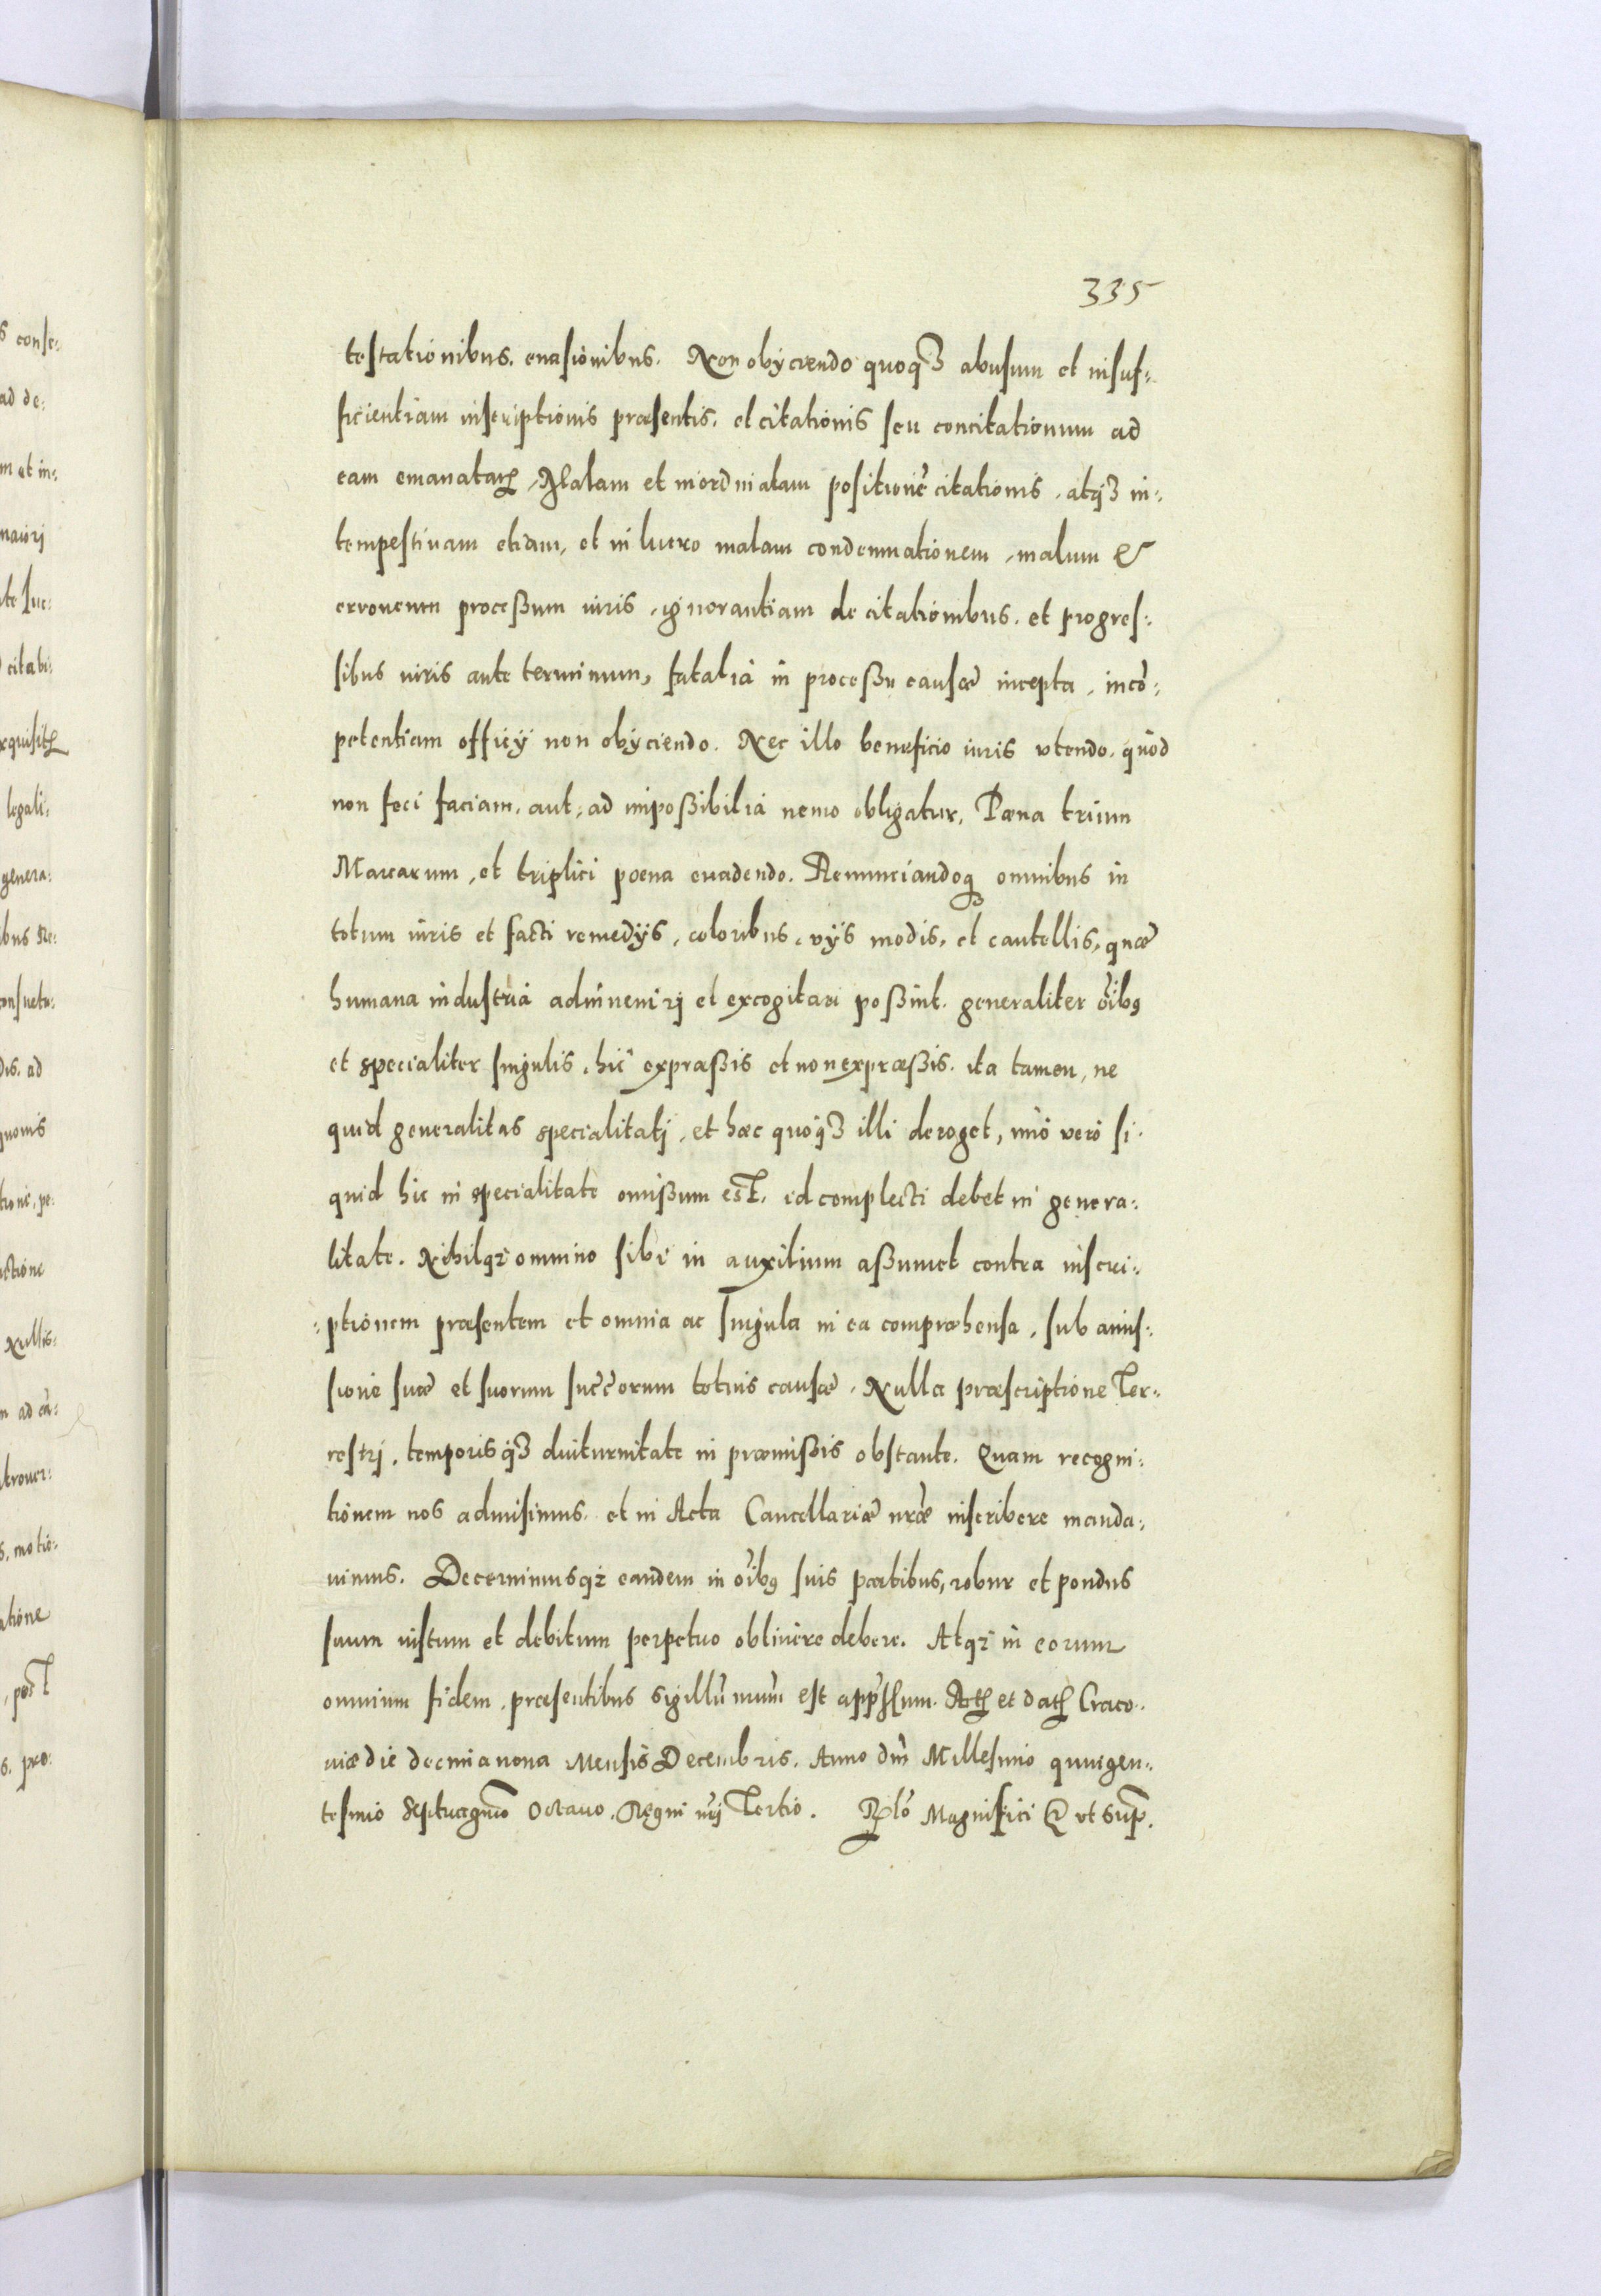 335
testationibus. euasionibus. Non obÿciendo quoqȝ abusum et insuf-
ficientiam inscriptionis præsentis. et citationis seu concitationum ad
eam emanatarꝝ, Malam et inordinatam positionē citationis, atqȝ in-
tempestiuam etiam, et in lucro malam condemnationem, malum &
erroneum proceßum iuris, ignorantiam de citationibus. et progres-
sibus iuris ante terminum, fatalia in proceßu causæ incepta, incō-
petentiam officÿ non obÿciendo. Nec illo beneficio iuris vtendo. quod
non feci faciam. aut, ad impoßibilia nemo obligatur. Pæna trium
Marcarum, et triplici poena euadendo. Renunciandoqȝ omnibus in
totum iuris et facti remedÿs, coloribus, vÿs modis, et cautellis, quæ
humana industria adinuenirj et excogitari poßint. generaliter oĩbꝯ
et specialiter singulis, hic expræßis et non expræßis. ita tamen, ne
quid generalitas specialitatj, et hæc quoqȝ illi deroget, imo vero si-
quid hic in specialitate omißum est. id complecti debet in genera-
litate. Nihilqȝ omnino sibi in auxilium aßumet contra inscri-
-ptionem præsentem et omnia ac singula in ea compræhensa, sub amis-
sione suæ et suorum succ̄orum totius causæ. Nulla præscriptione Ter-
restrj, temporisqȝ diuturnitate in præmißis obstante. Quam recogni-
tionem nos admisimus. et in Acta Cancellariæ nr̃æ inscribere manda-
uimus. Decernimusqȝ eandem in oĩbꝯ suis partibus, robur et pondus
suum iustum et debitum perpetuo obtinere debere. Atqȝ in eorum
omnium fidem, præsentibus sigillū nrūm est app̃ssum. Actꝝ et datꝝ Craco-
uiæ die decima nona Mensis Decembris. Anno dñi Millesimo quingen-
tesimo Septuagm̃o Octauo. Regni nr̃i Tertio. Rl̃o Magnifici & vt Sup̃.